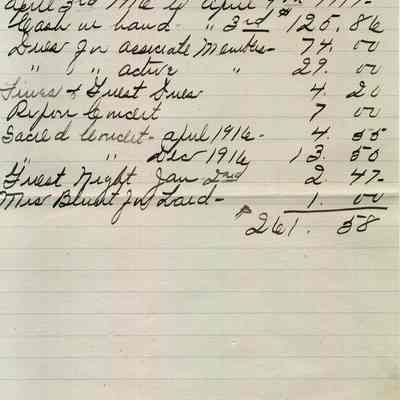 april 3rd 1916 to april 9th 1917-
Cash on hand - " 3rd $125.86
Dues for associate Members - 74.00
" " active " 29.00
Fines & Guest Dues 4.20
Ripon Concert 7 00
Sacred Concert - april 1916 - 4.55
" " Dec 1916 13.50
Guest Night Jan 2nd 2.47-
Mrs Blunt for Laid - 1.00
$261.58